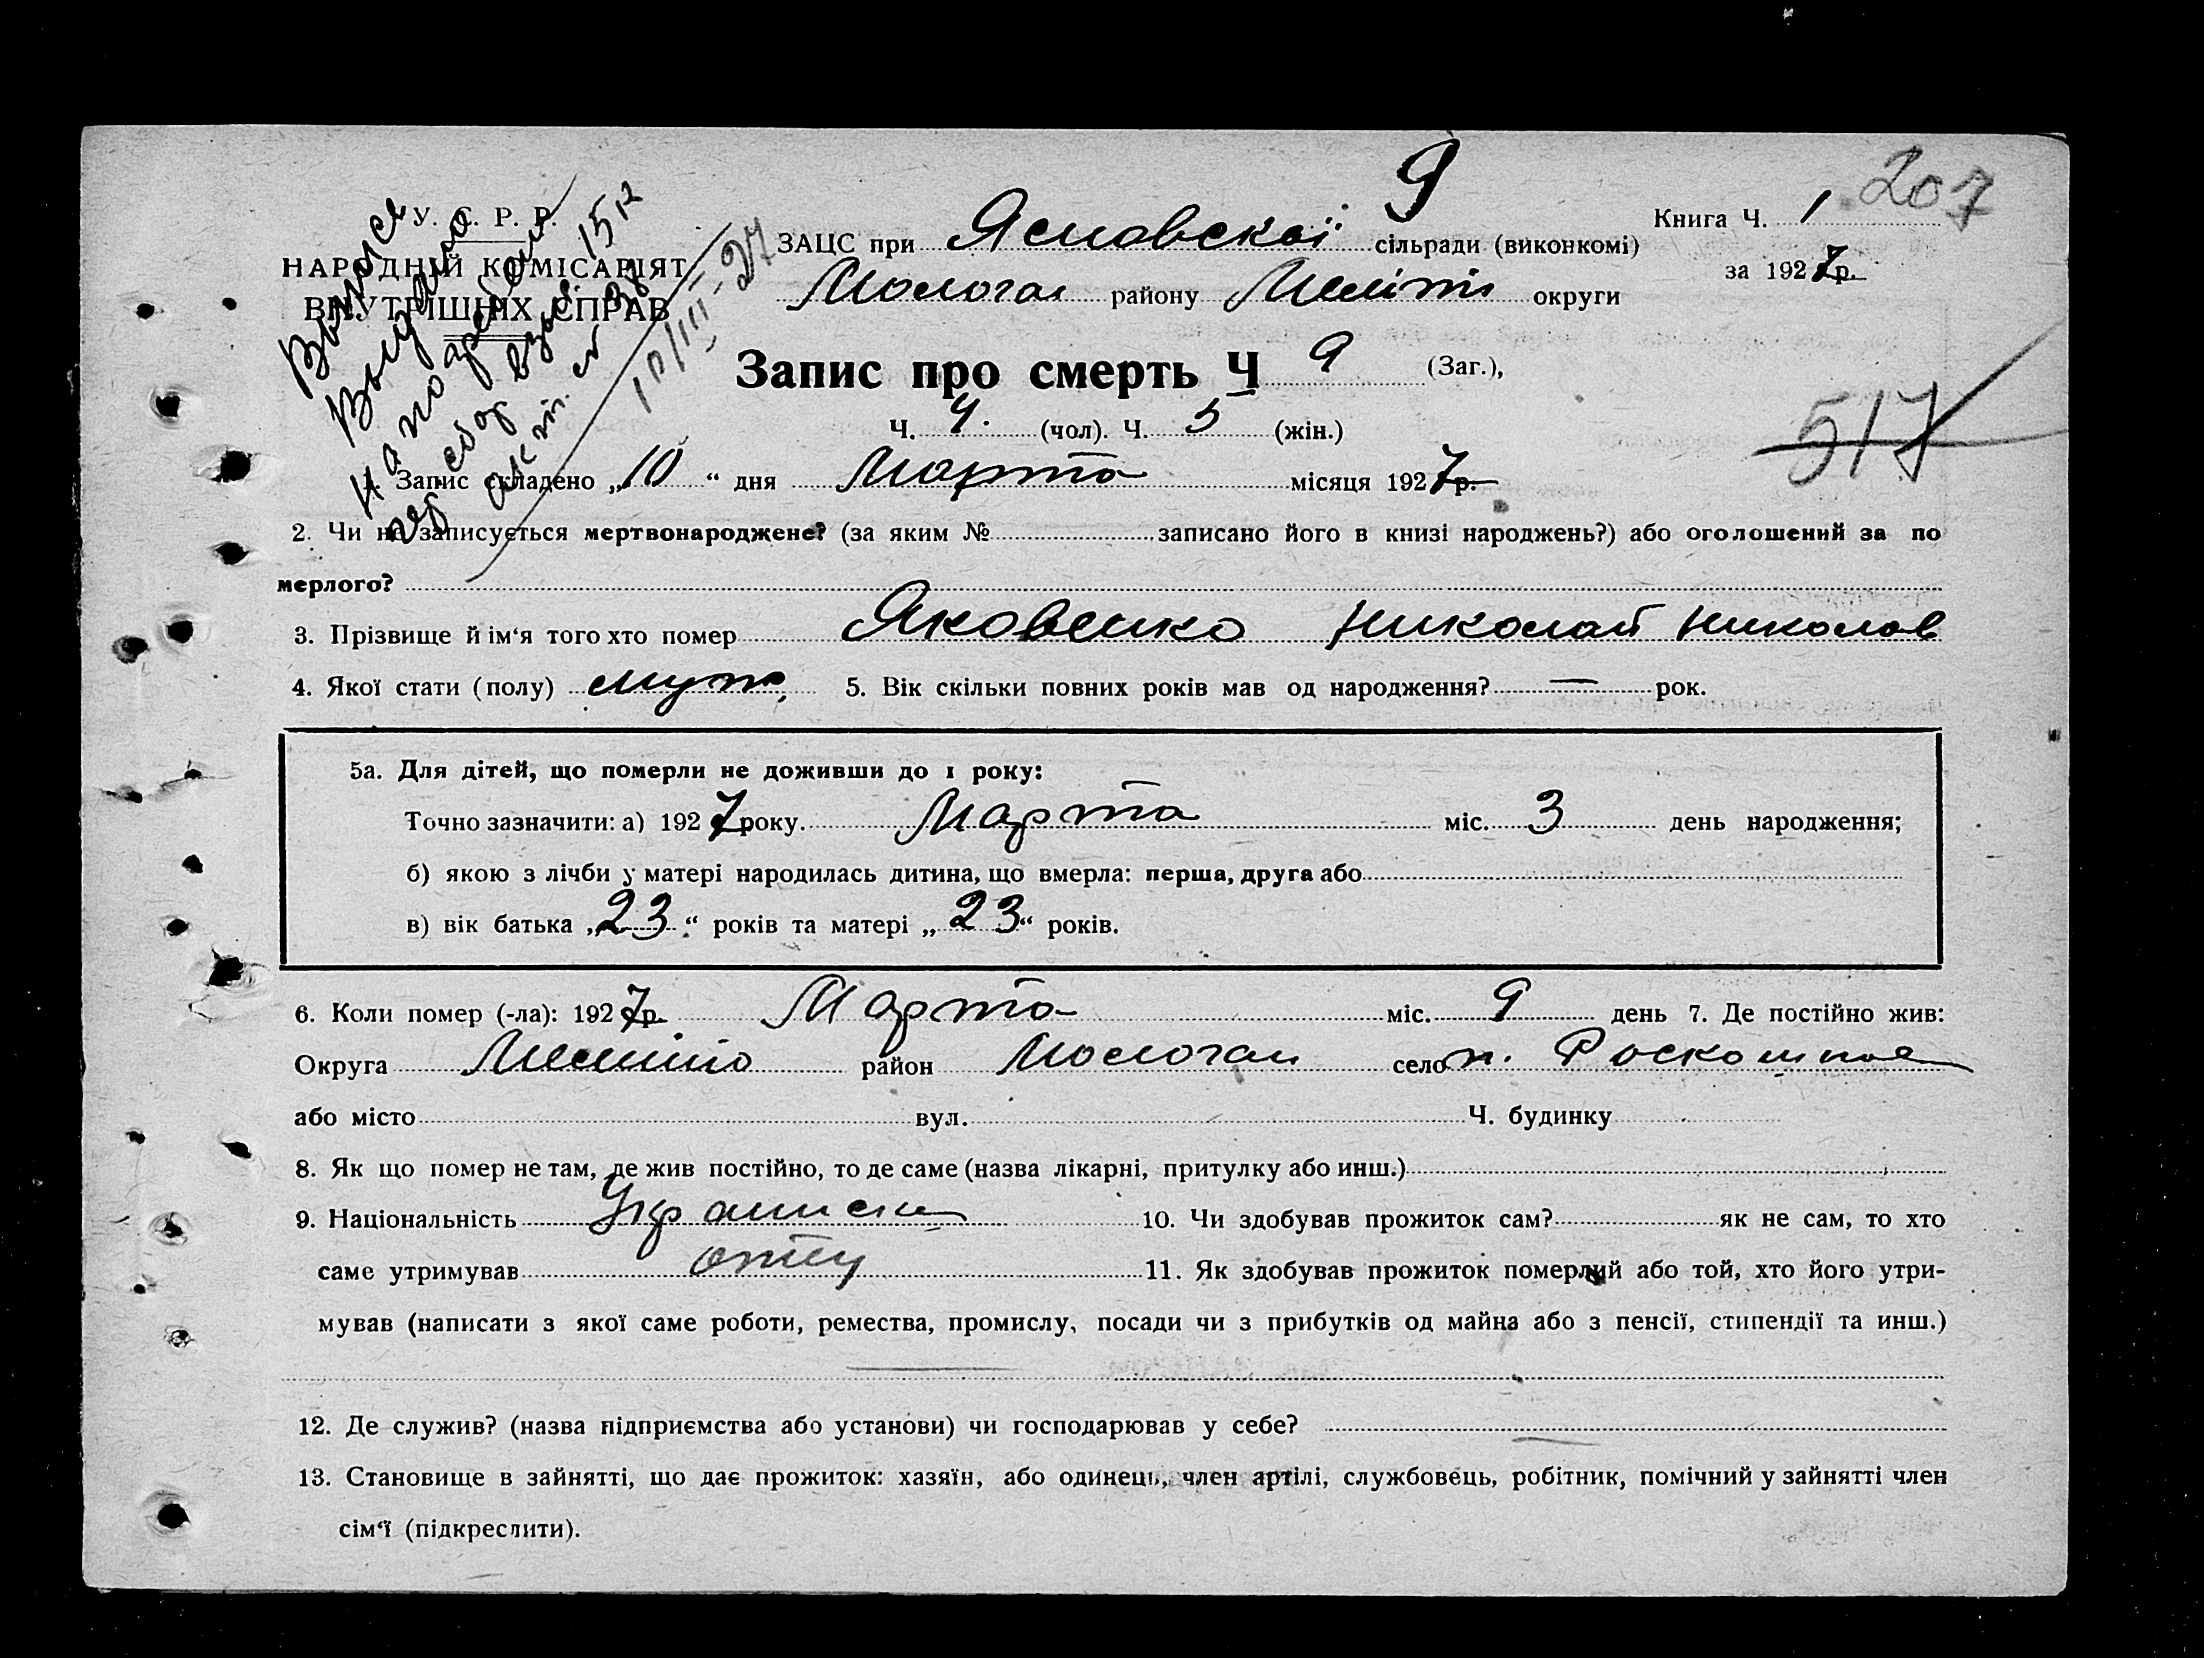 9
207
У. С. Р. Р.
НАРОДНІЙ КОМІСАРІЯТ
ВНУТРІШНІХ СПРАВ
Выпись
Выдана
на погребение
сбор взыс. 15 к
10/III-27
ЗАЦС при Ясновской сільради (виконкомі)
Книга Ч. 1
за 1927 р.
Мологат району Меліт округи
Запис про смерть Ч 9 (Заг.),
Ч. 4. (чол). Ч. 5 (жін.)
517
1. Запис складено „10“ дня Марта місяця 1927 р.
2. Чи не записується мертвонароджене? (за яким № записано його в книзі народжень?) або оголошений за по
мерлого?
3. Прізвище й ім‘я того хто помер Яковенко Николай Николаев
4. Якої стати (полу) муж, 5. Вік скільки повних років мав од народження? — рок.
5а. Для дітей, що померли не доживши до 1 року:
Точно зазначити: а) 1927 року. Марта міс. 3 день народження;
б) якою з лічби у матері народилась дитина, що вмерла: перша, друга або
в) вік батька „23“ років та матері „23“ років.
6. Коли помер (-ла): 1927 р. Марта міс. 9 день 7. Де постійно жив:
Округа район село п. Роскошное
або місто вул. Ч. будинку
8. Як що помер не там, де жив постійно, то де саме (назва лікарні, притулку або инш.)
9. Національність 10. Чи здобував прожиток сам? як не сам, то хто
саме утримував отец 11. Як здобував прожиток померлий або той, хто його утри-
мував (написати з якої саме роботи, ремества, промислу, посади чи з прибутків од майна або з пенсії, стипендії та инш.)
12. Де служив? (назва підприємства або установи) чи господарював у себе?
13. Становище в зайнятті, що дає прожиток: хазяїн, або одинець, член артілі, службовець, робітник, помічний у зайнятті член
сім‘ї (підкреслити).